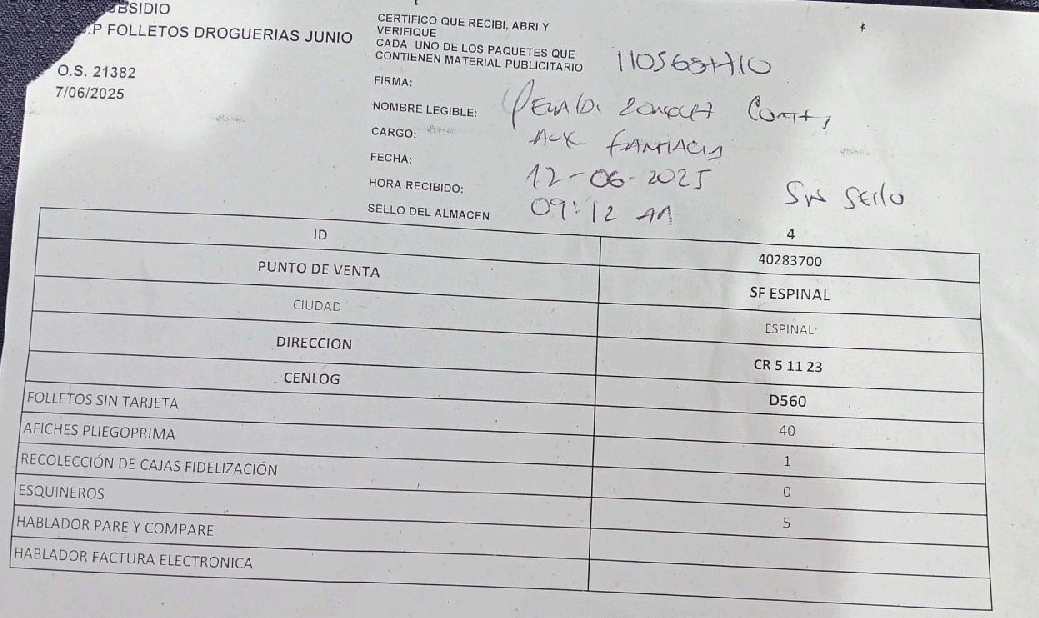 UBSIDIO
.P FOLLETOS DROGUERIAS JUNIO
O.S. 21382
7/06/2025
CERTIFICO QUE RECIBI, ABRI Y
VERIFIQUE
CADA UNO DE LOS PAQUETES QUE
CONTIENEN MATERIAL PUBLICITARIO
FIRMA:
NOMBRE LEGIBLE:
CARGO: AUX FARMACIA
FECHA: 12-06-2025
HORA RECIBIDO: 09:12 AM
SELLO DEL ALMACEN Sin Sello
ID 4
40283700
PUNTO DE VENTA SF ESPINAL
CIUDAD ESPINAL
DIRECCION CR 5 11 23
CENLOG D560
FOLLETOS SIN TARJETA 40
AFICHES PLIEGOPRIMA 1
RECOLECCIÓN DE CAJAS FIDELIZACIÓN 0
ESQUINEROS 5
HABLADOR PARE Y COMPARE
HABLADOR FACTURA ELECTRONICA